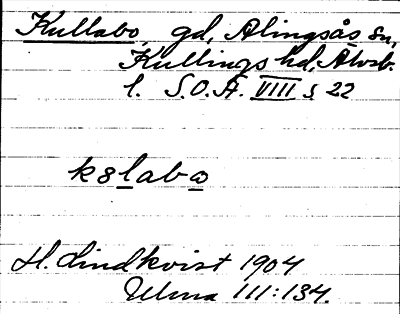 Kullabo, gd, Alingsås sn,
Kullings hd, Älvsb.
l. S.O.Ä. VIII s 22
k8labo
H. Lindkvist 1904
Ulma 111:134.